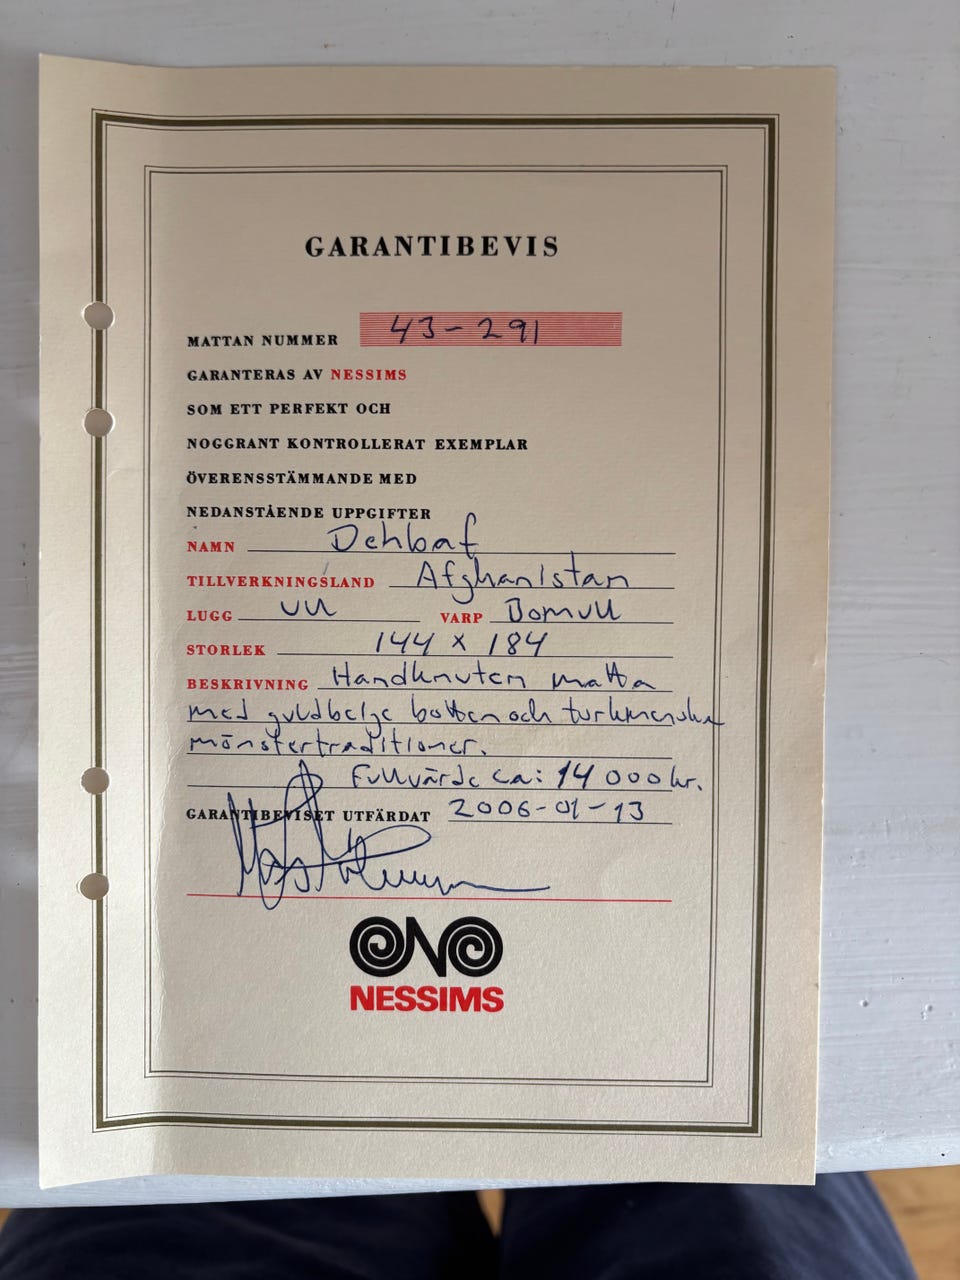 GARANTIBEVIS
MATTAN NUMMER 43-291
GARANTERAS AV NESSIMS
SOM ETT PERFEKT OCH
NOGGRANT KONTROLLERAT EXEMPLAR
ÖVERENSSTÄMMANDE MED
NEDANSTÅENDE UPPGIFTER
NAMN Dehbaf
TILLVERKNINGSLAND Afghanistan
LUGG Ull VARP Bomull
STORLEK 144 x 184
BESKRIVNING Handknuten matta
med guldbeige botten och turkmenska
mönstertraditioner.
Fullvärde ca: 14 000 kr.
GARANTIBEVISET UTFÄRDAT 2006-01-13
NESSIMS